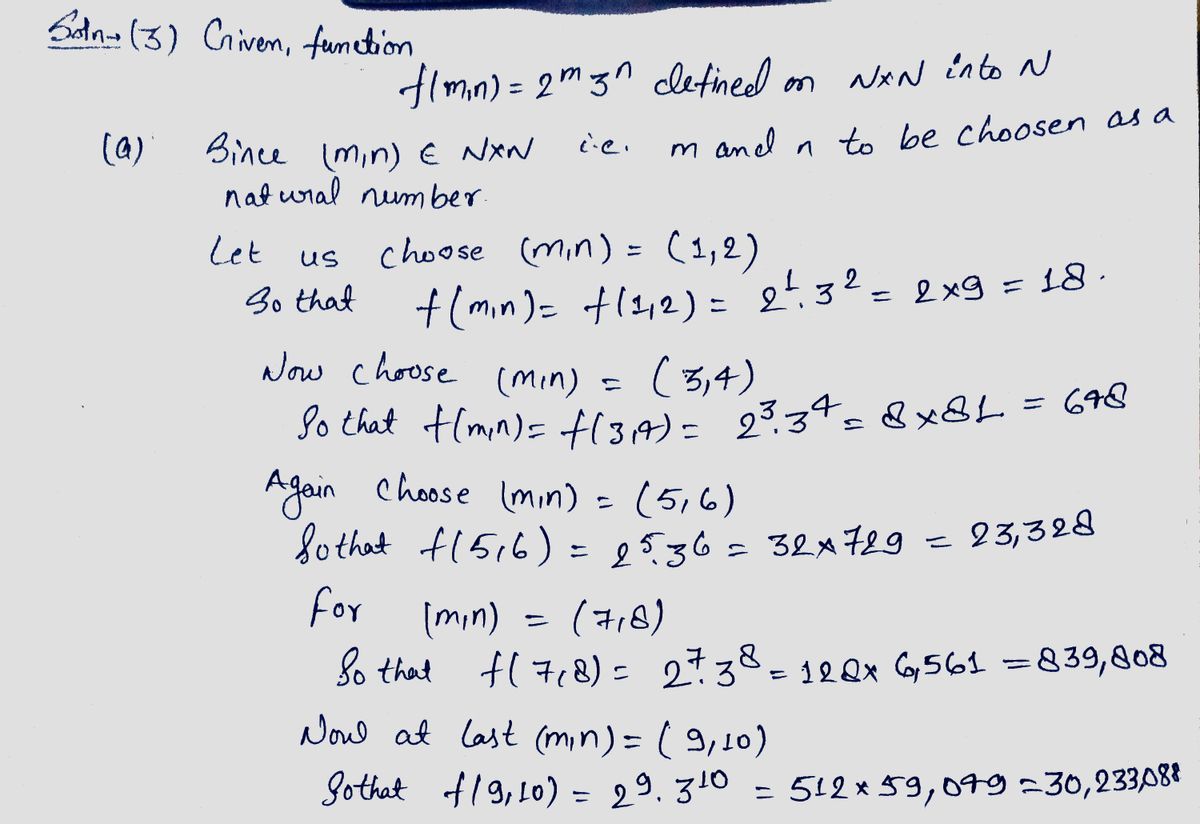 Soln→ (3) Given, function
f(m,n) = 2^m 3^n defined on N×N into N
(a) Since (m,n) ∈ N×N i.e. m and n to be choosen as a
natural number.
Let us choose (m,n) = (1,2)
So that f(m,n) = f(1,2) = 2^1.3^2 = 2×9 = 18.
Now choose (m,n) = (3,4)
So that f(m,n) = f(3,4) = 2^3.3^4 = 8×81 = 648
Again choose (m,n) = (5,6)
So that f(5,6) = 2^5.3^6 = 32×729 = 23,328
for (m,n) = (7,8)
So that f(7,8) = 2^7.3^8 = 128× 6,561 = 839,808
Now at last (m,n) = (9,10)
So that f(9,10) = 2^9.3^10 = 512×59,049 = 30,233,088